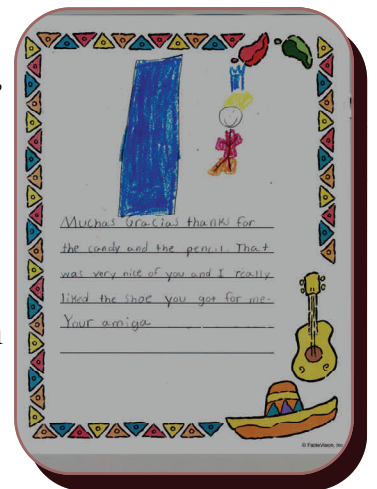 Muchas Gracias thanks for
the candy and the pencil. That
was very nice of you and I really
liked the shoe you got for me.
Your amiga
© FableVision, Inc.